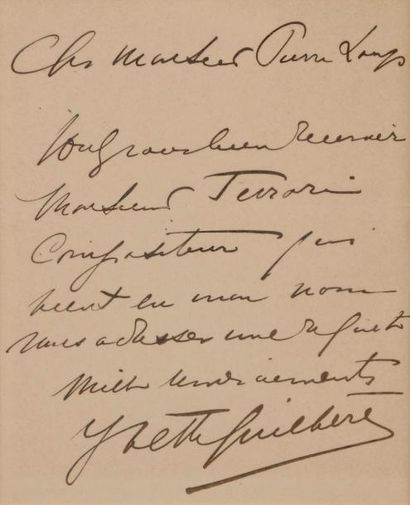 Cher Monsieur Pierre Louys
Voulez vous bien recevoir
Monsieur Ferrari
Compositeur qui
vient en mon nom
vous adresser une requête
Mille remerciements
Yvette Guilbert